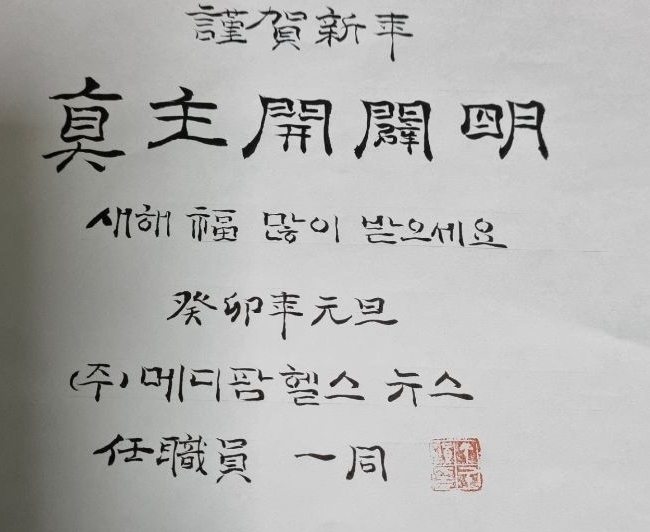 謹賀新年
眞主開闢明
새해 福 많이 받으세요
癸卯年元旦
(주)메디팜헬스 뉴스
任職員 一同